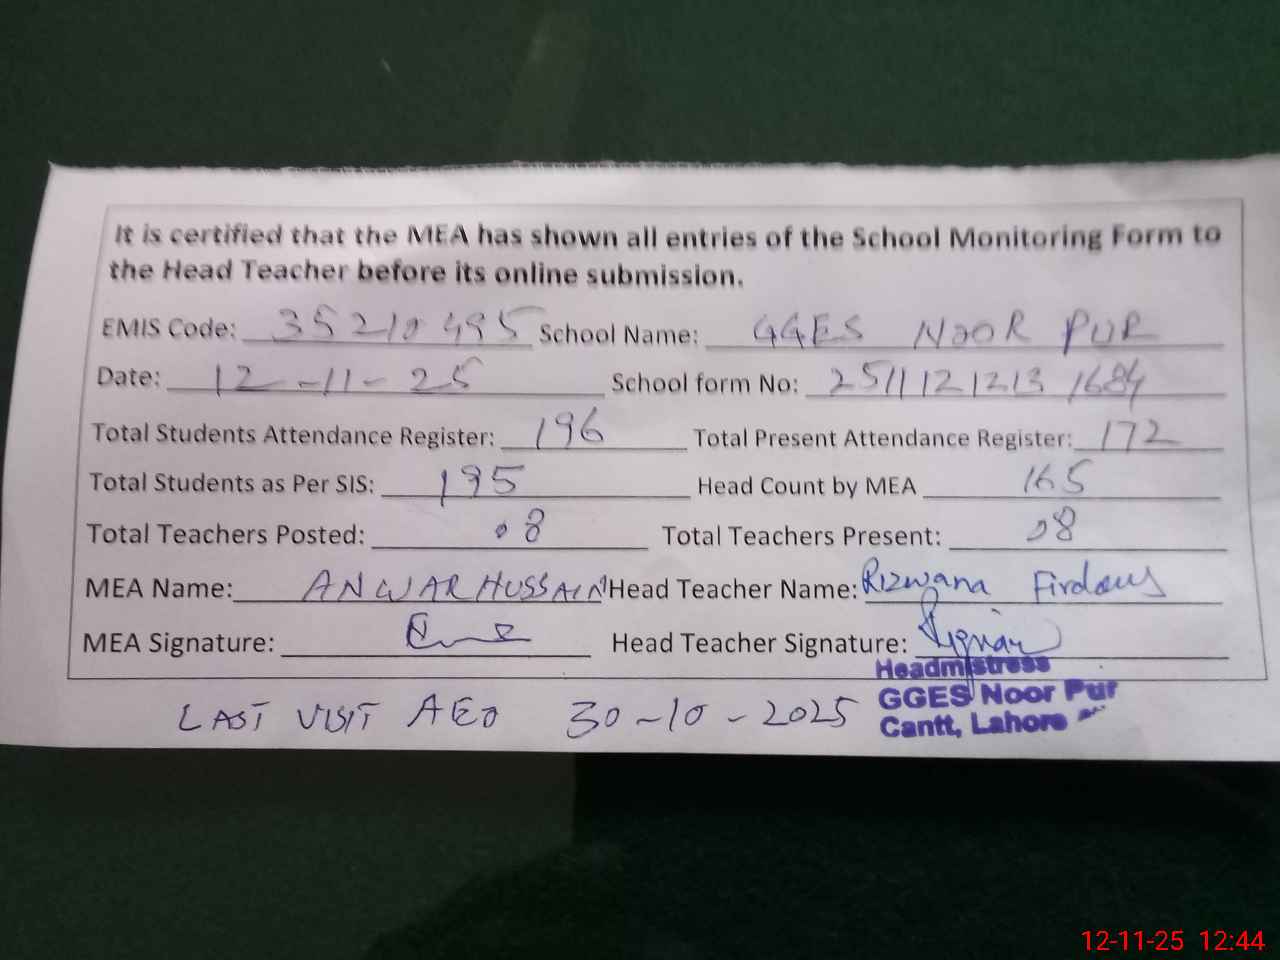 It is certified that the MEA has shown all entries of the School Monitoring Form to
the Head Teacher before its online submission.
EMIS Code: 35210495 School Name: GGES NOOR PUR
Date: 12-11-25 School form No: 2511121213 1684
Total Students Attendance Register: 196 Total Present Attendance Register: 172
Total Students as Per SIS: 195 Head Count by MEA 165
Total Teachers Posted: 08 Total Teachers Present: 08
MEA Name: ANWAR HUSSAIN Head Teacher Name: Rizwana Firdous
MEA Signature: Head Teacher Signature:
Headmistress
GGES Noor Pur
Cantt, Lahore
LAST VISIT AEO 30-10-2025
12-11-25 12:44